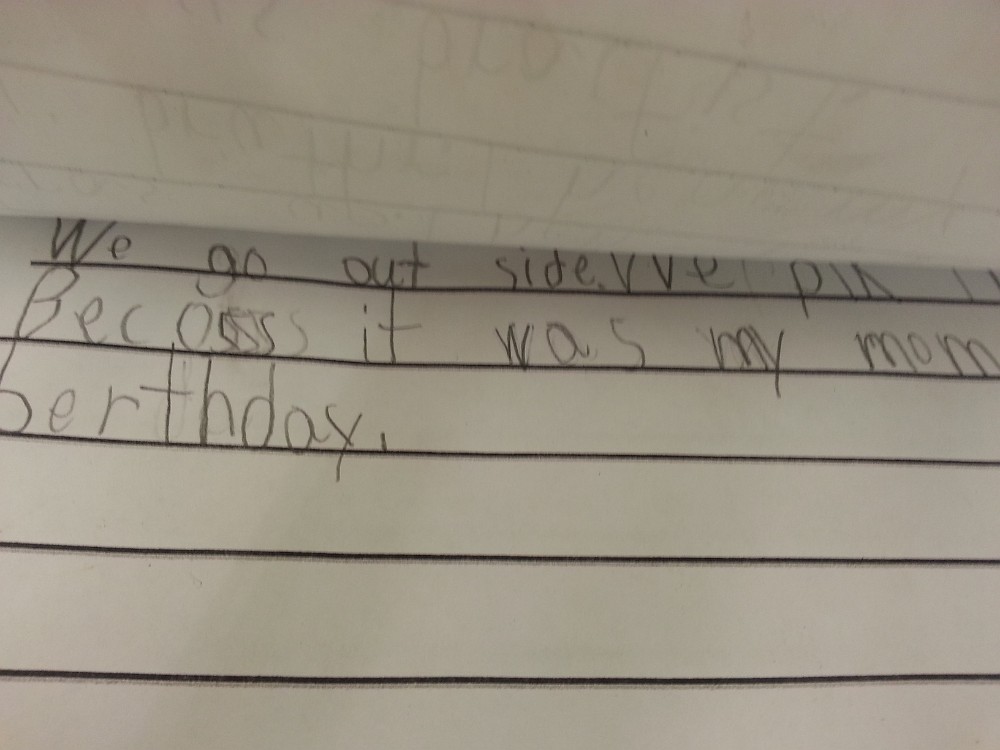 We go out side. We
Becosss it was my mom
berthday.